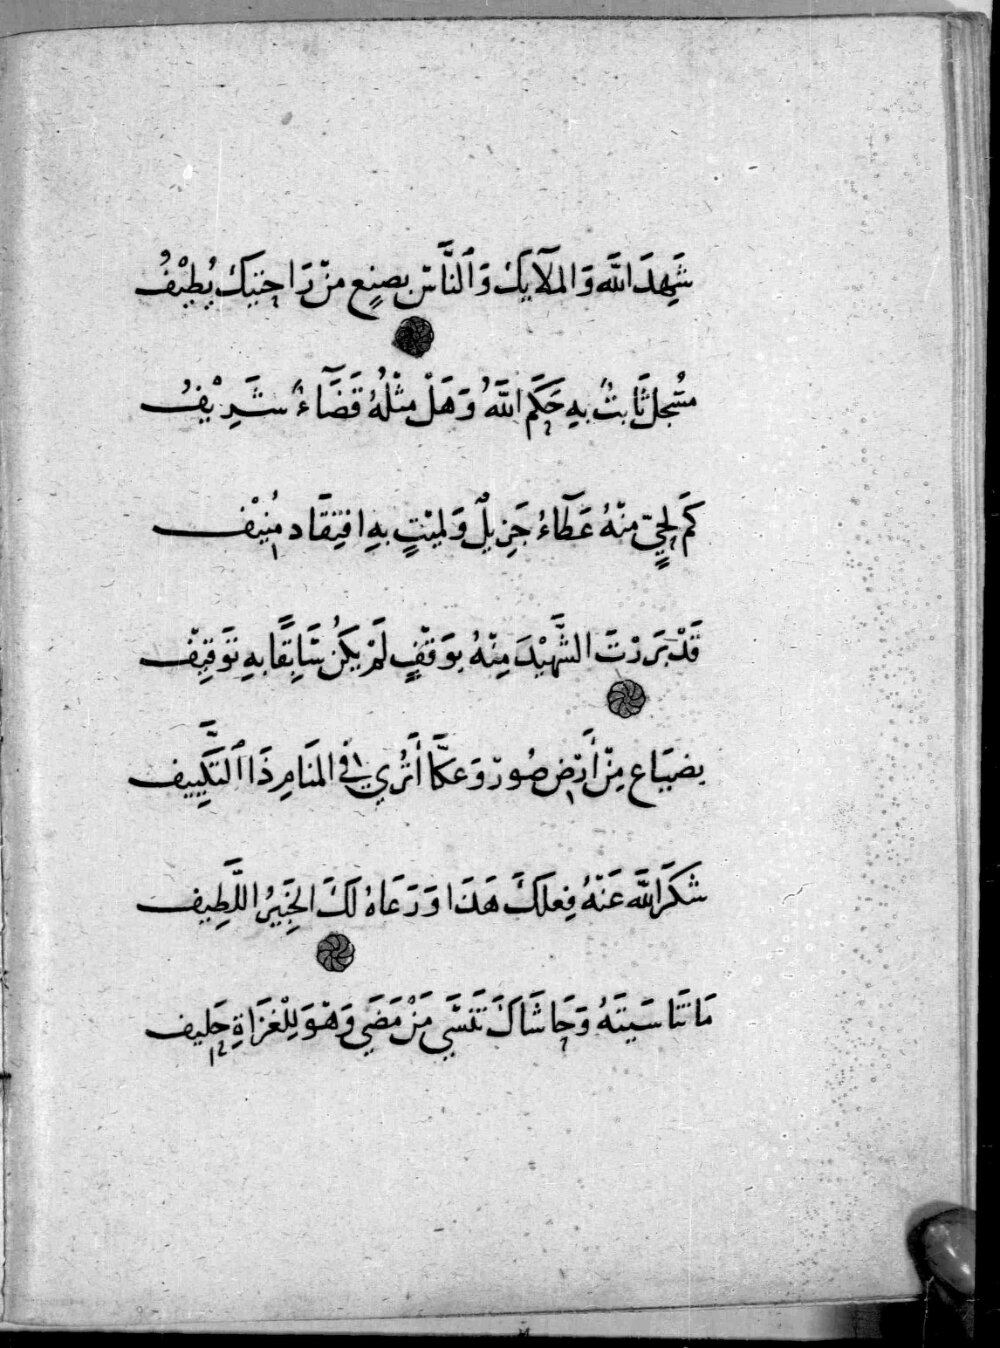 شَهِدَ اللَّه وَالملآيِكْ وَٱلنَّاسْ بِصنِعٍ مِنْ رَاحَتيكَ يُطِيْفُ
مسْجل ثَابتٌ بهِ حَكَم اللَّهُ وَهَلْ مِثْلُهُ قَضَآءٌ شَرِيْفُ
كَم لِحيٍّ مِنْهُ عَطَآءُ جَزِيلْ وَلميْتٍ بهِ افتِقَاد مُنِيْف
قَدْ بَرَرْتَ الشَّهِيْدَ مِنْهُ بوَقْفٍ لَمْ يَكُنْ سَابِقًا بهِ تَوقِيْف
بضيَاع مِنْ أَرْضِ صُورْ وَعكَّا أَتُرُي في المنَامِ ذَا ٱلتَّكِييف
شكَرَ اللَّه عَنْهُ فِعلَكَ هَذَا وَرَعَاهُ لَكَ الخَبِيرُ اللَّطِيف
مَا تَنَاسَيتَهُ وَحَاشَاكَ تَنسَي مَنْ مَضَي وَهْوَ لِلْغزَاةِ حَليف